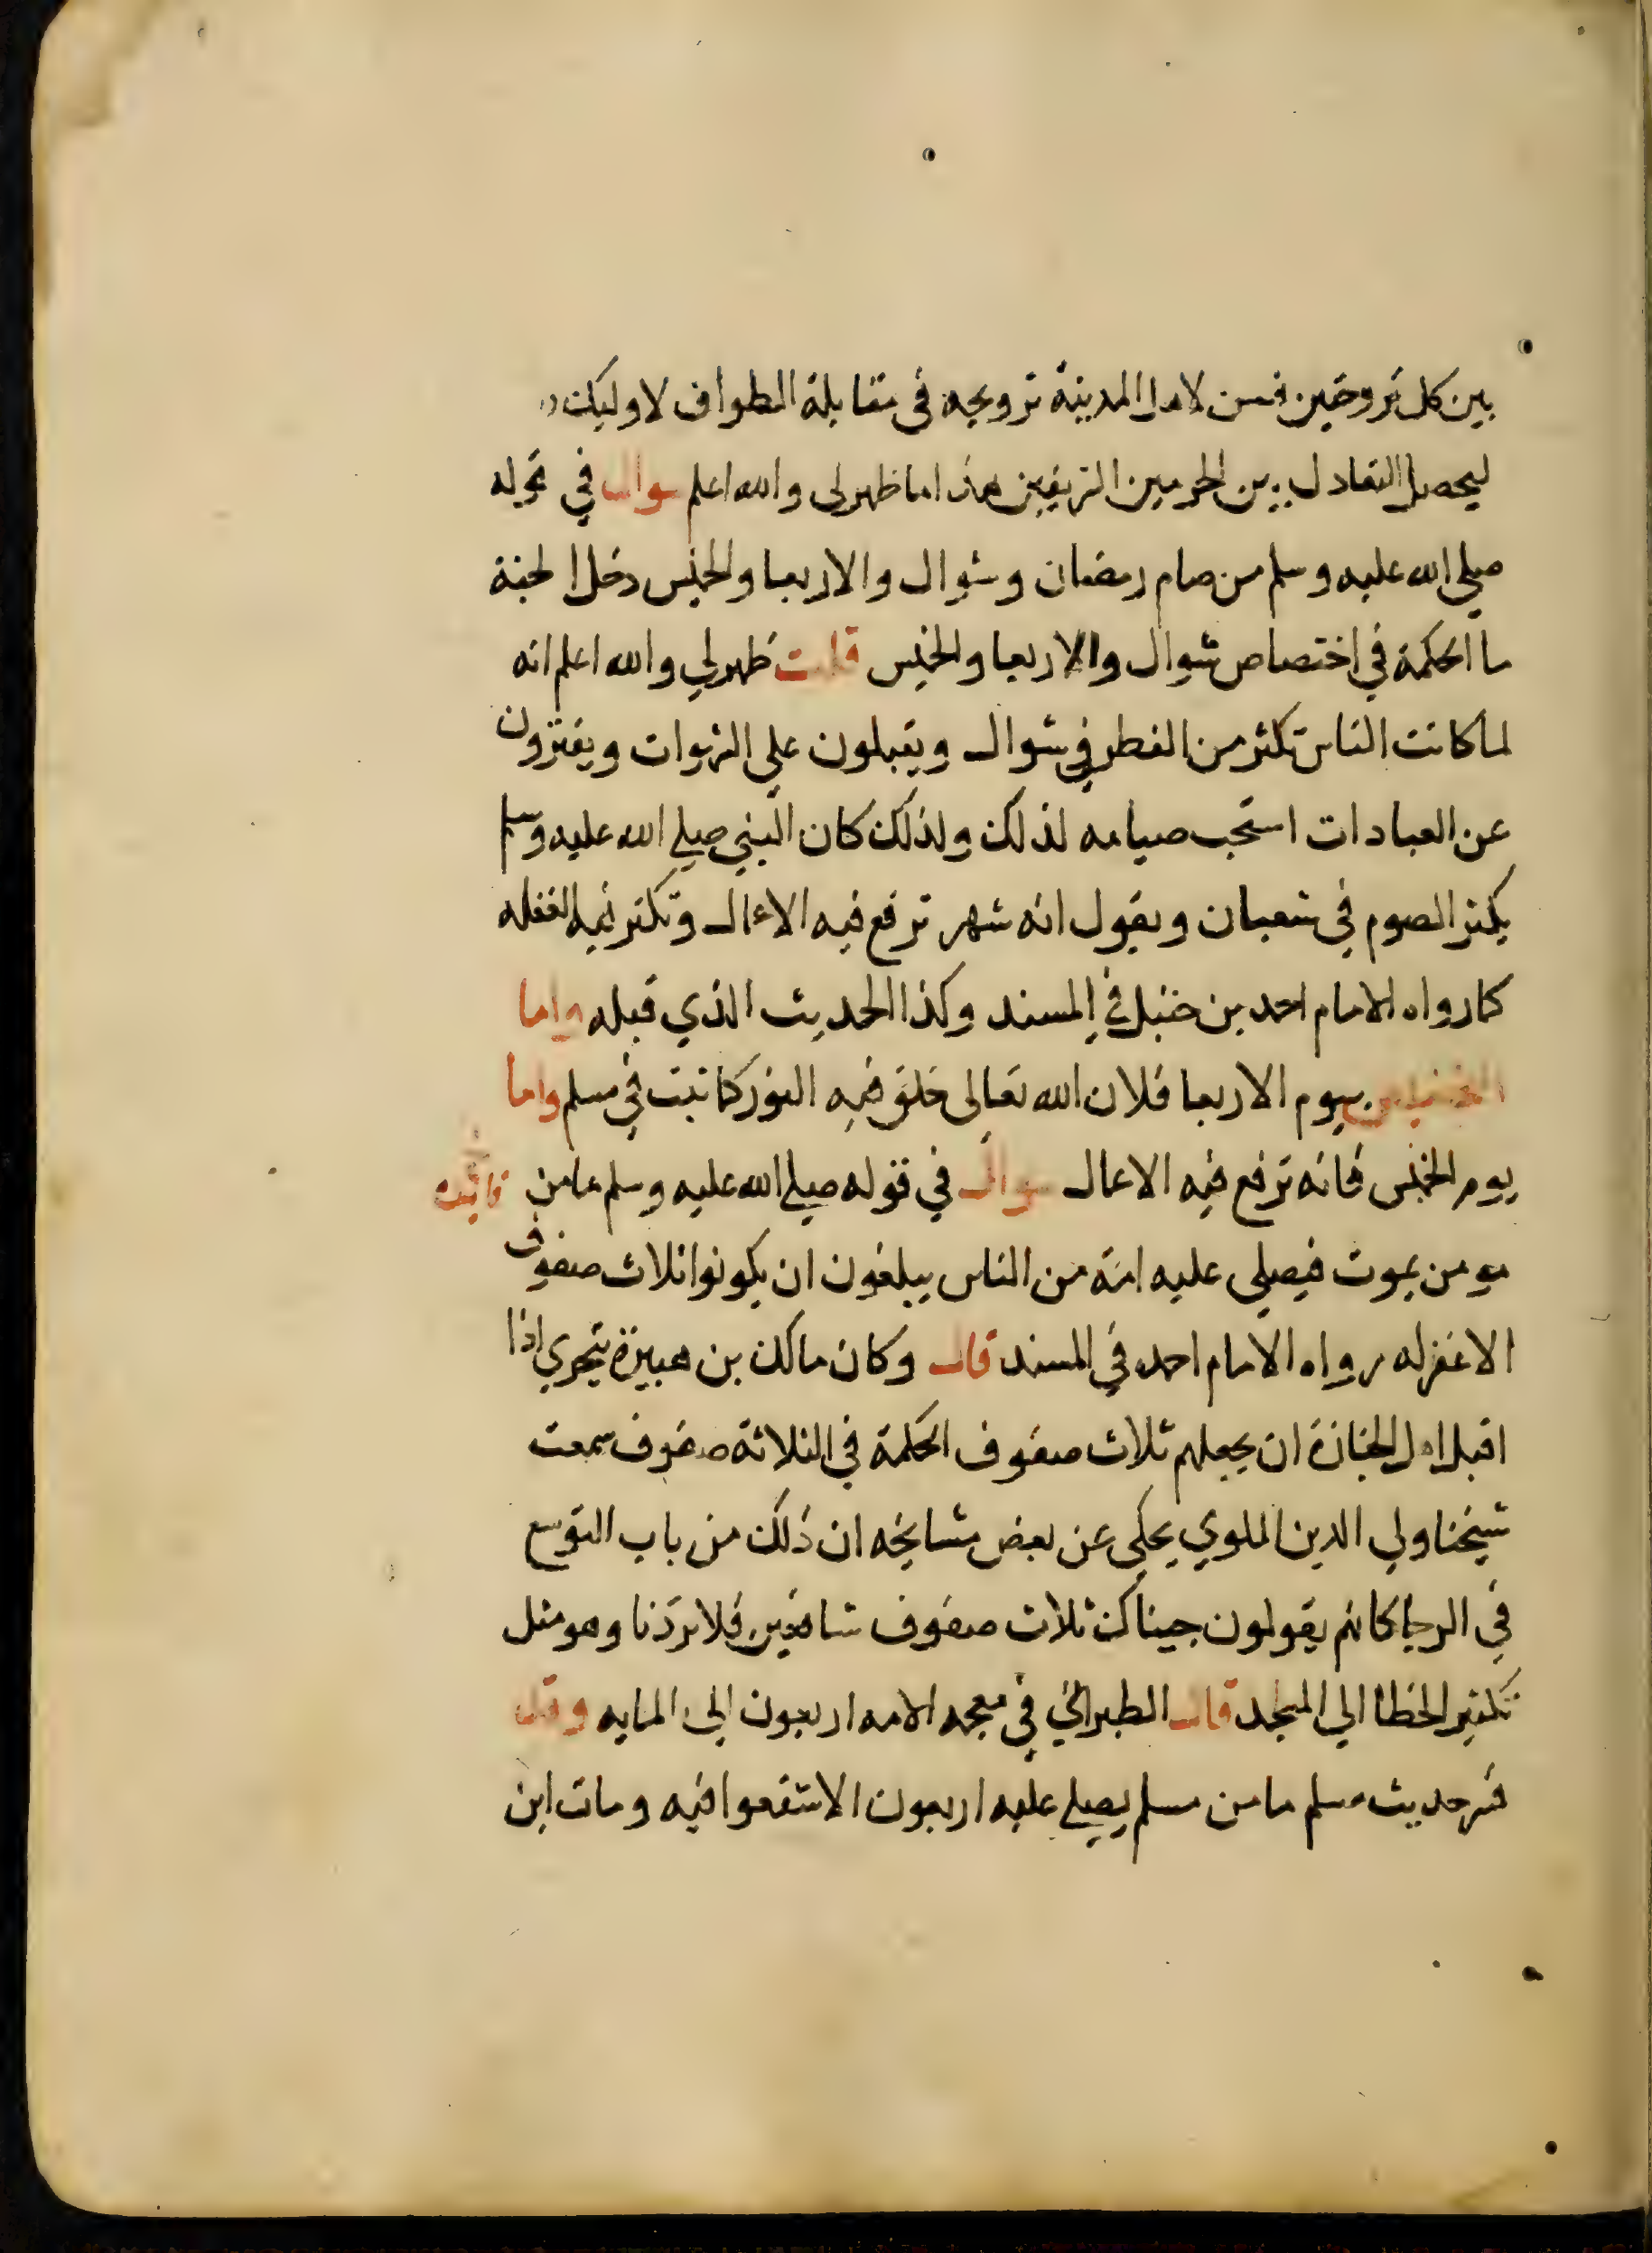 بين كل ترويحتين فسن لاهل المدينة ترويحه في مقابلة الطواف لاوليك
ليحصل التعادل بين الحرمين الشريفين هذا ما ظهر لي والله اعلم سوال في قوله
صلي الله عليه وسلم من صام رمضان وشوال والاربعا والخميس دخل الجنة
ما الحكمة في اختصاص شوال والاربعا والخميس قلت ظهر لي والله اعلم انه
لما كانت الناس تكثر من الفطر في شوال ويقبلون علي الشهوات ويفترون
عن العبادات استحب صيامه لذلك ولذلك كان النبي صلي الله عليه وسلم
يكثر الصوم في شعبان ويقول انه شهر ترفع فيه الاعمال وتكثر فيه الغفله
كما رواه الامام احمد بن حنبل في المسند وكذا الحديث الذي قبله واما
يوم الاربعا فلان الله تعالى خلق فيه النور كما ثبت في مسلم واما
يوم الخميس فانه ترفع فيه الاعمال سوال في قوله صلي الله عليه وسلم ما من
مومن يموت فيصلي عليه امة من الناس يبلغون ان يكونوا ثلاث صفوف
الا غفر له رواه الامام احمد في المسند قال وكان مالك بن هبيرة يتحري اذا
اقبل اهل الجنازة ان يجعلهم ثلاث صفوف الحكمة في الثلاثة صفوف سمعت
شيخنا ولي الدين الملوي يحكي عن بعض مشايخه ان ذلك من باب التوسع
في الرجا كانهم يقولون جيناك ثلاث صفوف شافعين فلا تردنا وهو مثل
تكثير الخطا الي المسجد قال الطبراني في معجمه الامه اربعون الي المايه وقد
فسر حديث مسلم ما من مسلم يصلي عليه اربعون الا شفعوا فيه ومات ابن